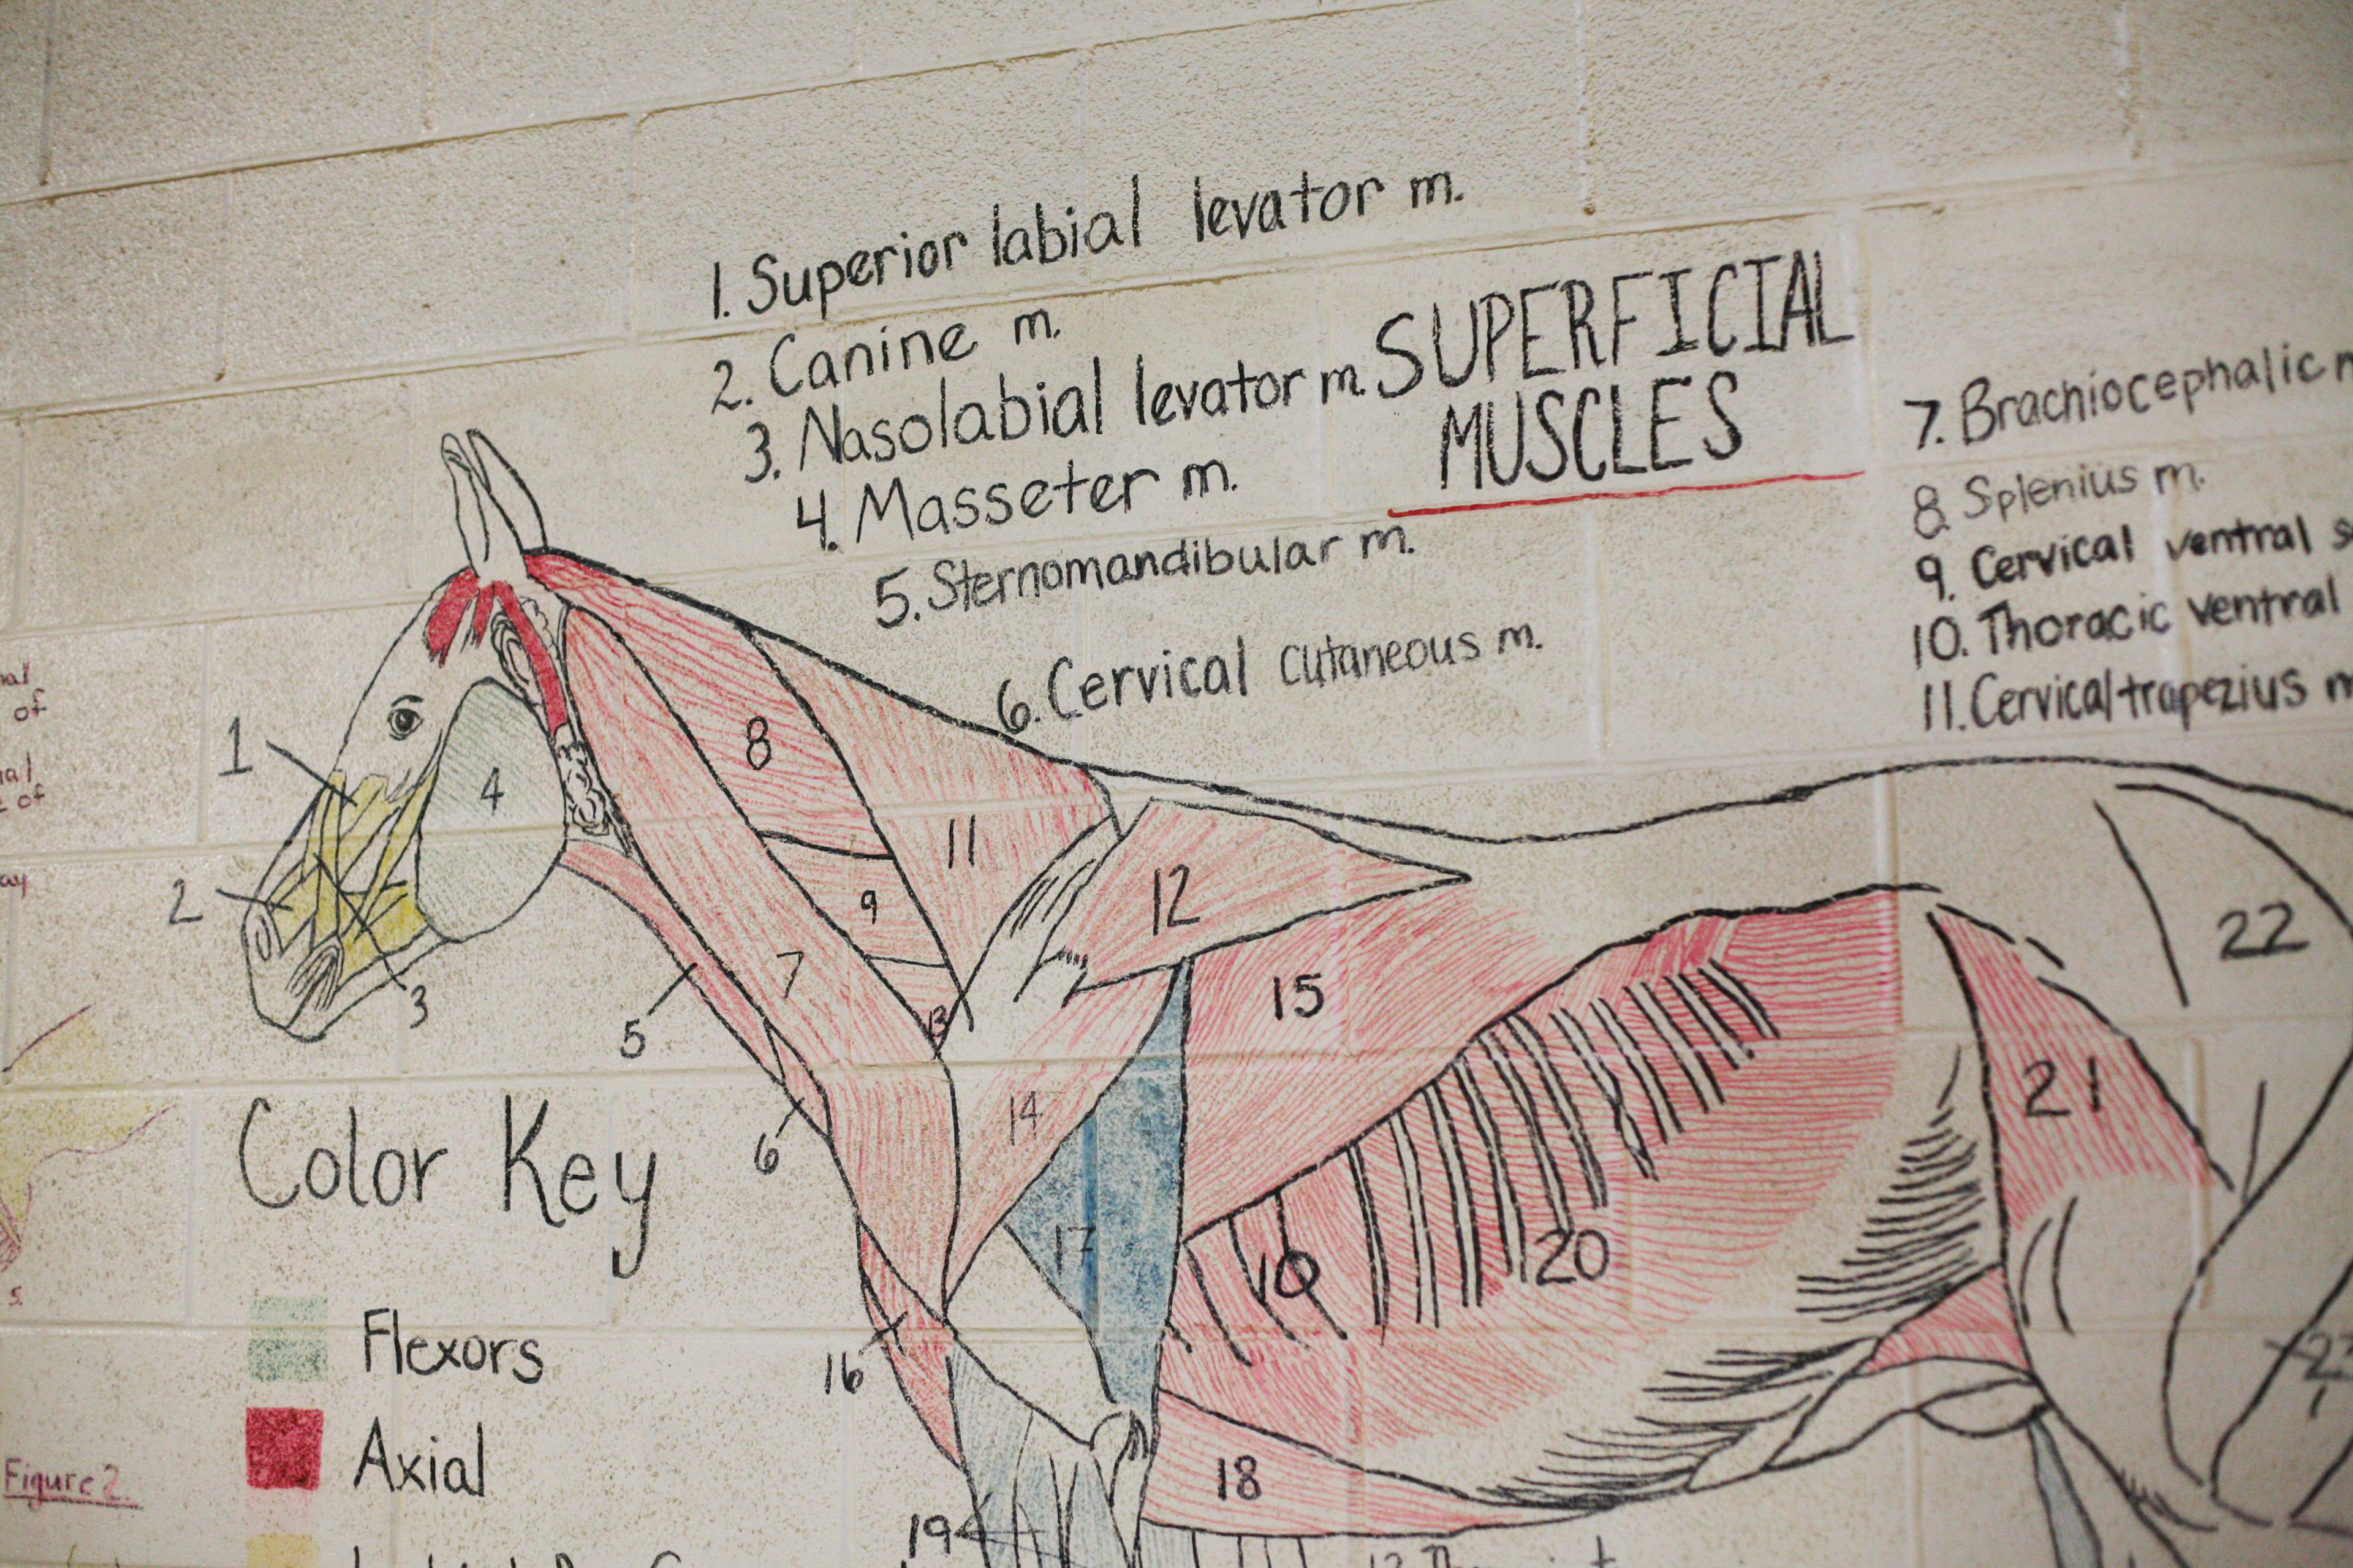 1. Superior labial levator m.
2. Canine m.
3. Nasolabial levator m.
4. Masseter m.
5. Sternomandibular m.
6. Cervical cutaneous m.
SUPERFICIAL
MUSCLES
7. Brachiocephalic
8. Splenius m.
9. Cervical ventral
10. Thoracic ventral
11. Cervical trapezius m
of
of
1
2
3
4
5
6
7
8
9
11
12
13
14
15
16
17
18
19
19
20
21
22
Color Key
Flexors
Axial
Figure 2.
5.